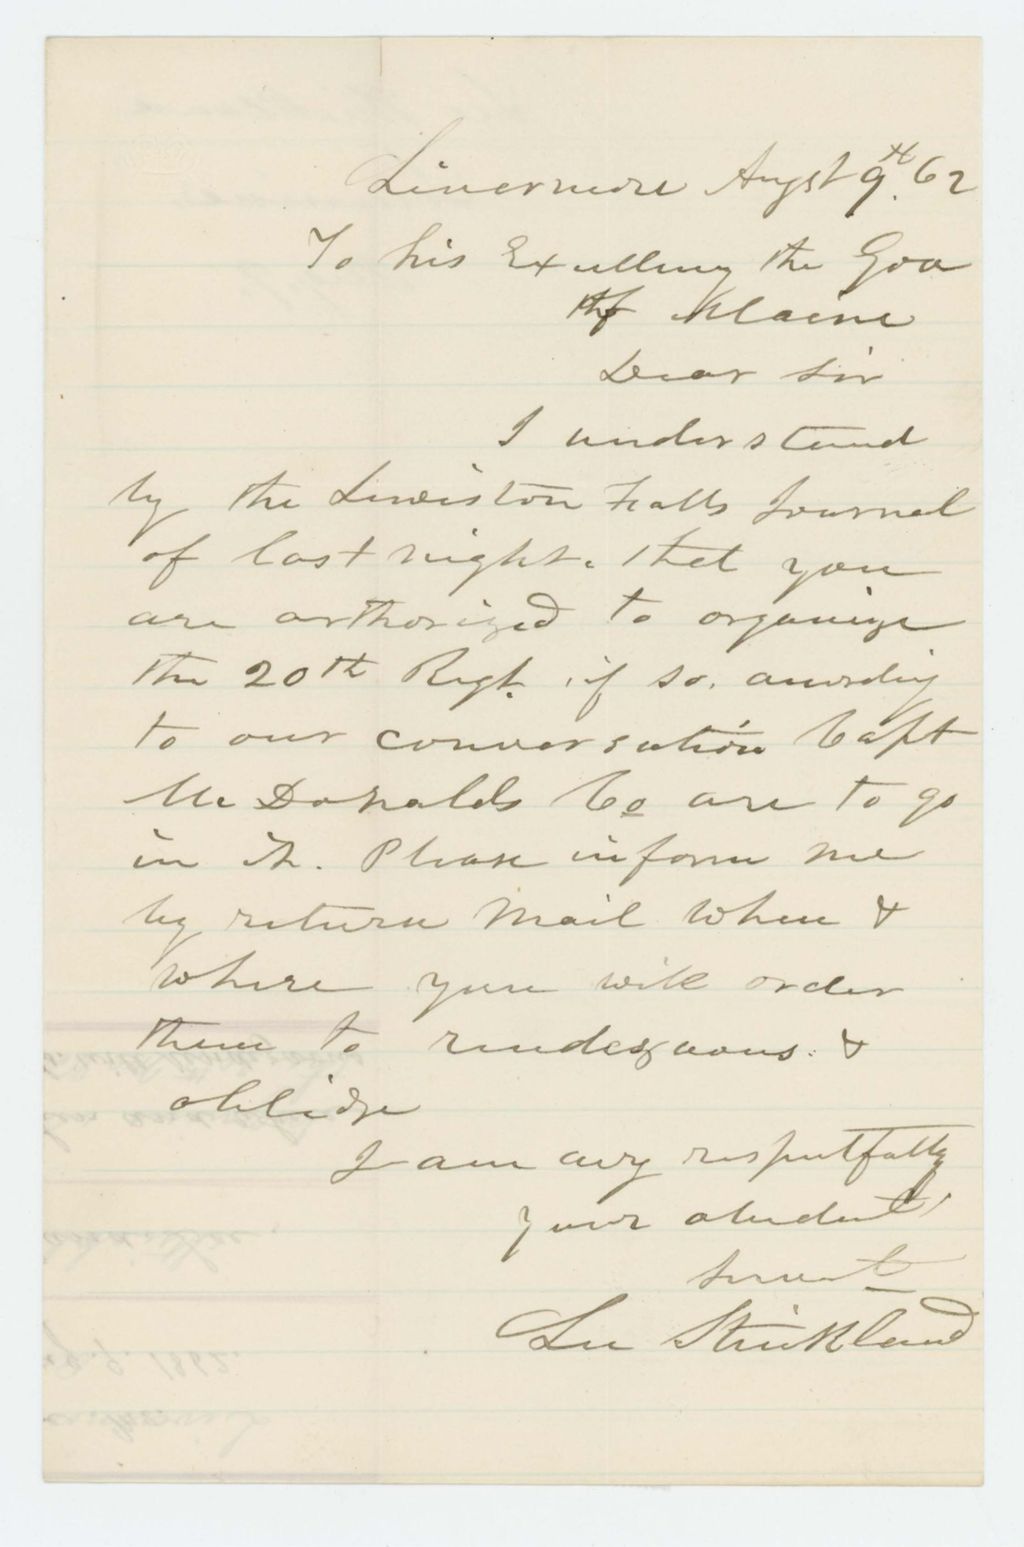 Livermore Augst 9th. 62
To his Excellency the Gov
of Maine
Dear Sir
I understand
by the Lewiston Falls Journal
of last night. that you
are authorized to organize
the 20th Regt. if so. according
to our conversation Capt
McDonalds Co are to go
in it. Please inform me
by return Mail when &
where you will order
them to rendezvous. &
oblidge
I am very respectfully
your obedient
servant
Lee Strickland